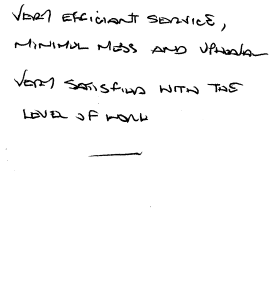 VERY EFFICIANT SERVICE,
MINIMUL MESS AND UPHEAVAL
VERY SATISFIED WITH THE
LEVEL OF WORK